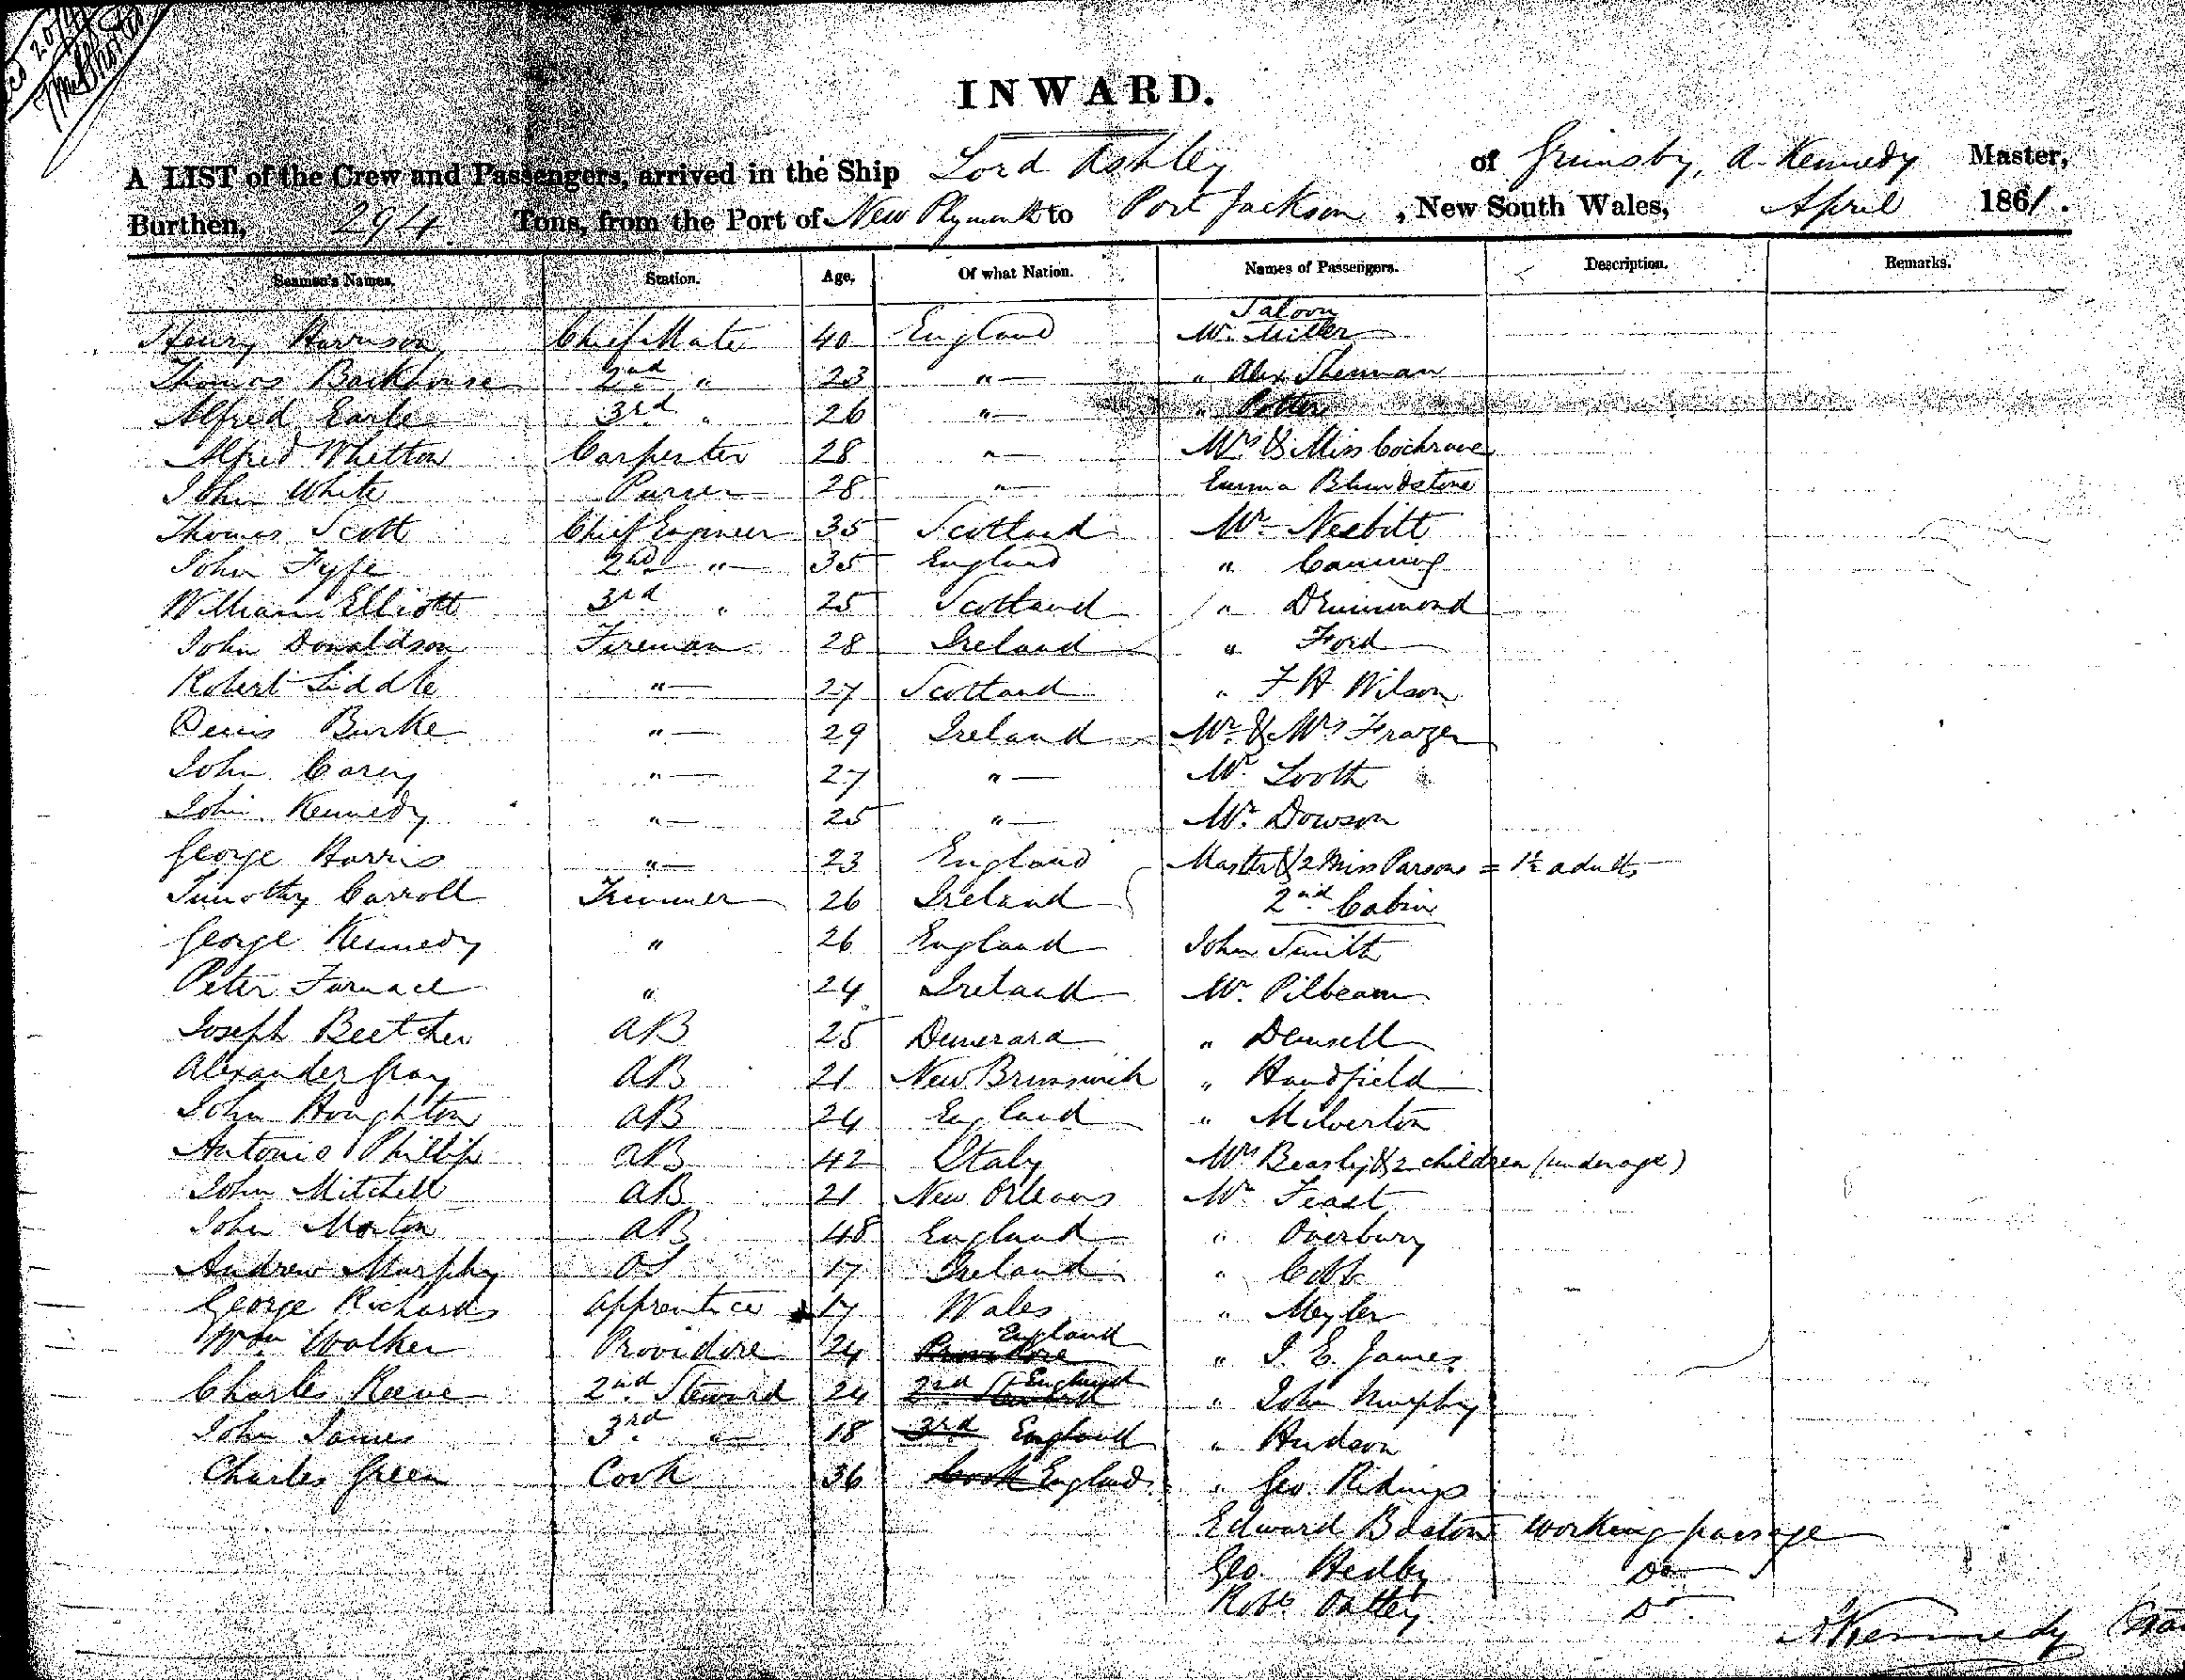 INWARD.
A LIST of the Crew and Passengers, arrived in the Ship Lord Ashley of Grimsby, A. Kennedy Master,
Burthen, 294 Tons, from the Port of New Plymouth to Port Jackson, New South Wales, April 1861.
Seamen's Names. Station. Age. Of what Nation. Names of Passengers. Description. Remarks.
Saloon
Henry Harrison Chief Mate 40 England Mr. Miller
Thomas Backhouse 2nd " 23 " — " Alex Sherman
Alfred Earle 3rd " 26 " — " Potter
Alfred Whetton Carpenter 28 " — Mrs & Miss Cochrane
John White Purser 28 " — Emma Blundstone
Thomas Scott Chief Engineer 35 Scotland Mr Nesbitt
John Fyfe 2nd " — 35 England " Canning
William Elliott 3rd " 25 Scotland " Drummond
John Donaldson Fireman 28 Ireland " Ford
Robert Liddle " — 27 Scotland " F H Wilson
Denis Burke " — 29 Ireland Mr & Mrs Frazer
John Carey " — 27 " — Mr Tooth
John Kennedy " — 25 " — Mr Dowson
George Harris " — 23 England Master & 2 Miss Parsons = 1½ adults
Timothy Carroll Trimmer 26 Ireland 2nd Cabin
George Kennedy " 26 England John Smith
Peter Furnace " 24 Ireland Mr. Pilbeam
Joseph Beetcher AB 25 Demerara " Densell
Alexander Gray AB 21 New Brunswick " Handfield
John Houghton AB 24 England " Milverton
Antonio Phillips AB 42 Italy Mrs Beasley & 2 children (under age)
John Mitchell AB 21 New Orleans Mr Feast
John Morton AB 48 England " Overbury
Andrew Murphy OS 17 Ireland " Cobb
George Richards Apprentice 17 Wales " Meyler
Wm Walker Providore 24 Providore England " J. E. James
Charles Reeve 2nd Steward 24 2nd Steward England " John Murphy
John James 3rd " — 18 3rd England " Hudson
Charles Green Cook 36 Cook England " Geo Ridings
Edward Baston working passage
Geo. Hedby Do
Robt Oatley Do
A Kennedy